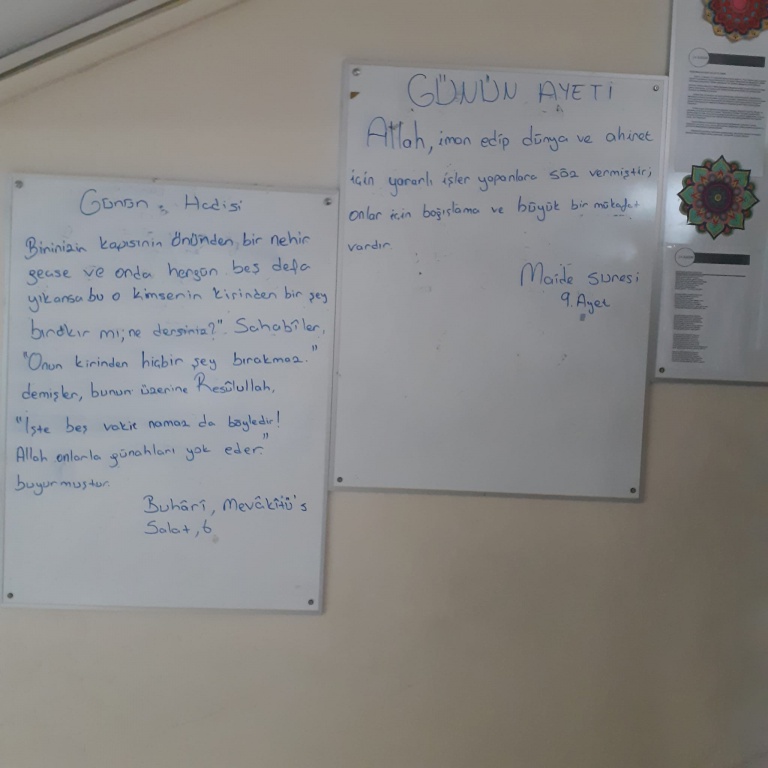 Günün Hadisi
Birinizin kapısının önünden bir nehir
geçse ve onda hergün beş defa
yıkansa bu o kimsenin kirinden bir şey
bırakır mı; ne dersiniz?". Sahabîler,
"Onun kirinden hiçbir şey bırakmaz."
demişler, bunun üzerine Resûlullah,
"İşte beş vakit namaz da böyledir!
Allah onlarla günahları yok eder."
buyurmuştur.
Buhârî, Mevâkîtü's
Salat, 6
GÜNÜN AYETİ
Allah, iman edip dünya ve ahiret
için yararlı işler yapanlara söz vermiştir;
onlar için bağışlama ve büyük bir mükafat
vardır.
Maide suresi
9. Ayet